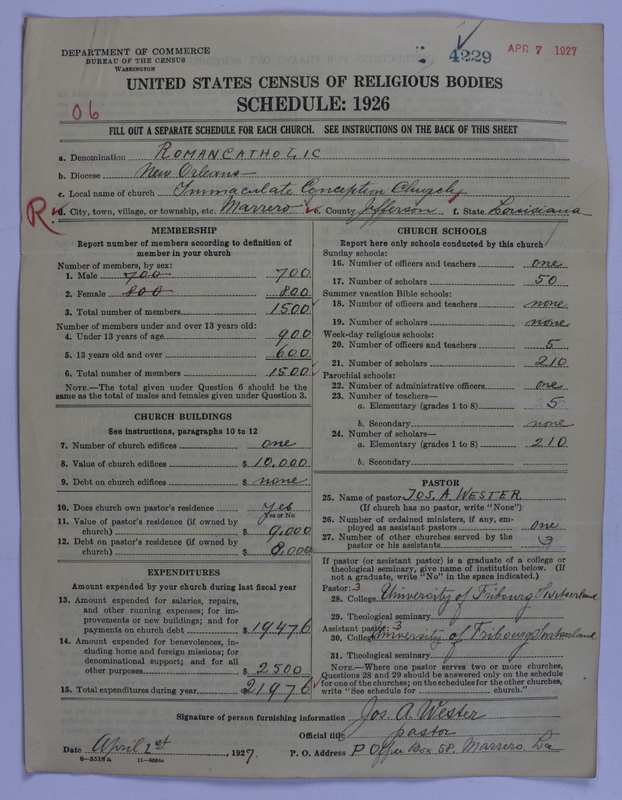 DEPARTMENT OF COMMERCE
BUREAU OF THE CENSUS
WASHINGTON
4229
APR 7 1927
UNITED STATES CENSUS OF RELIGIOUS BODIES
SCHEDULE: 1926
06
FILL OUT A SEPARATE SCHEDULE FOR EACH CHURCH. SEE INSTRUCTIONS ON THE BACK OF THIS SHEET
a. Denomination ROMAN CATHOLIC
b. Diocese New Orleans
c. Local name of church Immaculate Conception Church
R. d. City, town, village, or township, etc. Marrero e. County Jefferson f. State Louisiana
MEMBERSHIP
Report number of members according to definition of
member in your church
Number of members, by sex:
1. Male 700 700
2. Female 800 800
3. Total number of members 1500
Number of members under and over 13 years old:
4. Under 13 years of age 900
5. 13 years old and over 600
6. Total number of members 1500
NOTE.—The total given under Question 6 should be the
same as the total of males and females given under Question 3.
CHURCH BUILDINGS
See instructions, paragraphs 10 to 12
7. Number of church edifices one
8. Value of church edifices $ 10,000
9. Debt on church edifices $ none
10. Does church own pastor's residence yes
Yes or No
11. Value of pastor's residence (if owned by
church) $ 9,000
12. Debt on pastor's residence (if owned by
church) $ 8,000
EXPENDITURES
Amount expended by your church during last fiscal year
13. Amount expended for salaries, repairs,
and other running expenses; for im-
provements or new buildings; and for
payments on church debt $ 19476
14. Amount expended for benevolences, in-
cluding home and foreign missions; for
denominational support; and for all
other purposes $ 2500
15. Total expenditures during year $ 21976
CHURCH SCHOOLS
Report here only schools conducted by this church
Sunday schools:
16. Number of officers and teachers one
17. Number of scholars 50
Summer vacation Bible schools:
18. Number of officers and teachers none
19. Number of scholars none
Week-day religious schools:
20. Number of officers and teachers 5
21. Number of scholars 210
Parochial schools:
22. Number of administrative officers one
23. Number of teachers—
a. Elementary (grades 1 to 8) 5
b. Secondary none
24. Number of scholars—
a. Elementary (grades 1 to 8) 210
b. Secondary
PASTOR
25. Name of pastor JOS. A. WESTER
(If church has no pastor, write "None")
26. Number of ordained ministers, if any, em-
ployed as assistant pastors one
27. Number of other churches served by the
pastor or his assistants
If pastor (or assistant pastor) is a graduate of a college or
theological seminary, give name of institution below. (If
not a graduate, write "No" in the space indicated.)
Pastor: 3
28. College University of Fribourg Switserland
29. Theological seminary
Assistant pastor: 3
30. College University of Fribourg Switserland
31. Theological seminary
NOTE.—Where one pastor serves two or more churches,
Questions 28 and 29 should be answered only on the schedule
for one of the churches; on the schedules for the other churches,
write "See schedule for church."
Signature of person furnishing information Jos. A. Wester
Official title pastor
Date April 1st, 1927. P. O. Address P Office Box 58. Marrero La
8-5518a 11-9054